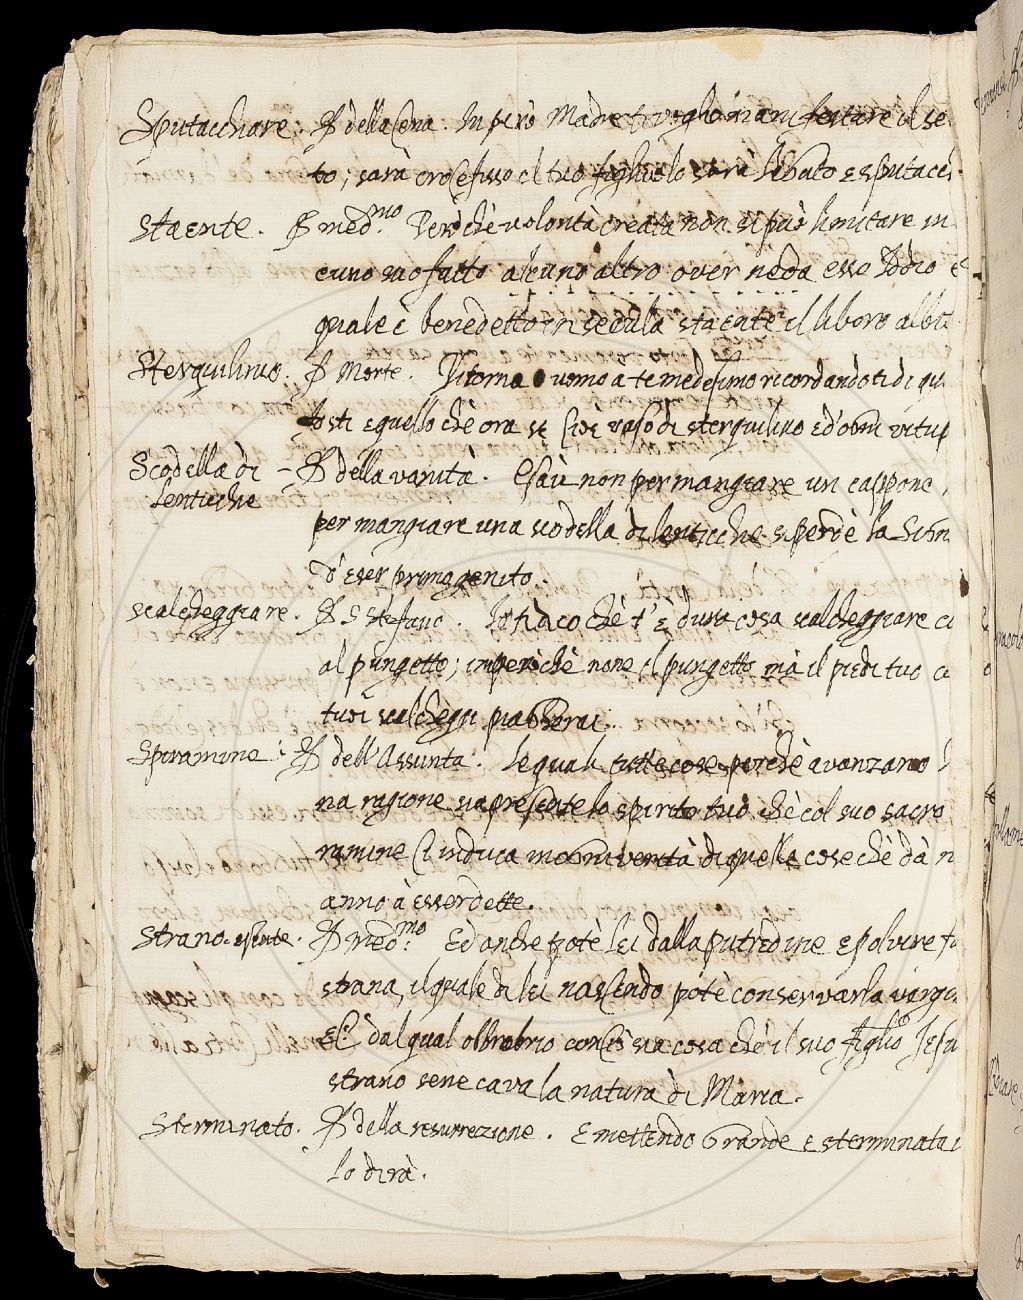 Sputacchiare. P. della Cena. Inperò Madre ti voglio manifestare il se
to; sarà crocefisso el tuo figliuolo sarà libato e sputacch
Staente. P. med.mo Però chè volontà creata non si può limitare in
cuno suo fatto alcuno altro over neda esse Iddio
quale è benedetto in secula staente il libero albi
Sterquilinio. P. Morte. Ritorna o uomo à te medesimo ricordandoti di qu
fosti e quello chè ora se cioè vaso di sterquilino ed'ogni vitup
Scodella di – P. della vanità. Esaù non per mangiare un cappone,
lenticchie
per mangiare una scodella di lenticche si perdè la
d'eser primogenito.
scalcheggiare. P. S Stefano. Io ti dico chè t'è dura cosa scalcheggiare
al pungetto; imperòchè none il pungetto mà il piedi tuo
tu si scalcheggi piagherai.
Spiramine: P. dell'Assunta. Le quali tutte cose perchè avanzano
na ragione sia presente lo spirito tuo chè col suo sacro
ramine ci induca in ogni verità di quelle cose chè dà n
anno à esser dette.
Strano. P. med.mo Ed anche potè lei dalla putredine e polvire
strana, il quale di lei nascendo potè conservarla virgi
Ec. dal qual obbrobrio conciò sia cosa chè il suo figlio Jesu
strano sene cava la natura di Maria.
Sterminato. P. della resurrezione. E mettendo grande e sterminata
lo dirà.